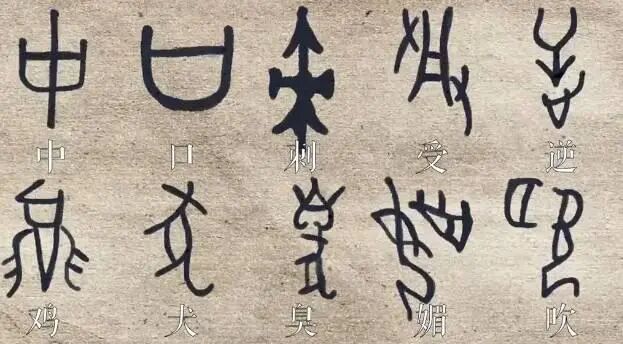 中 口 刺 受 逆
鸡 犬 臭 媚 吹